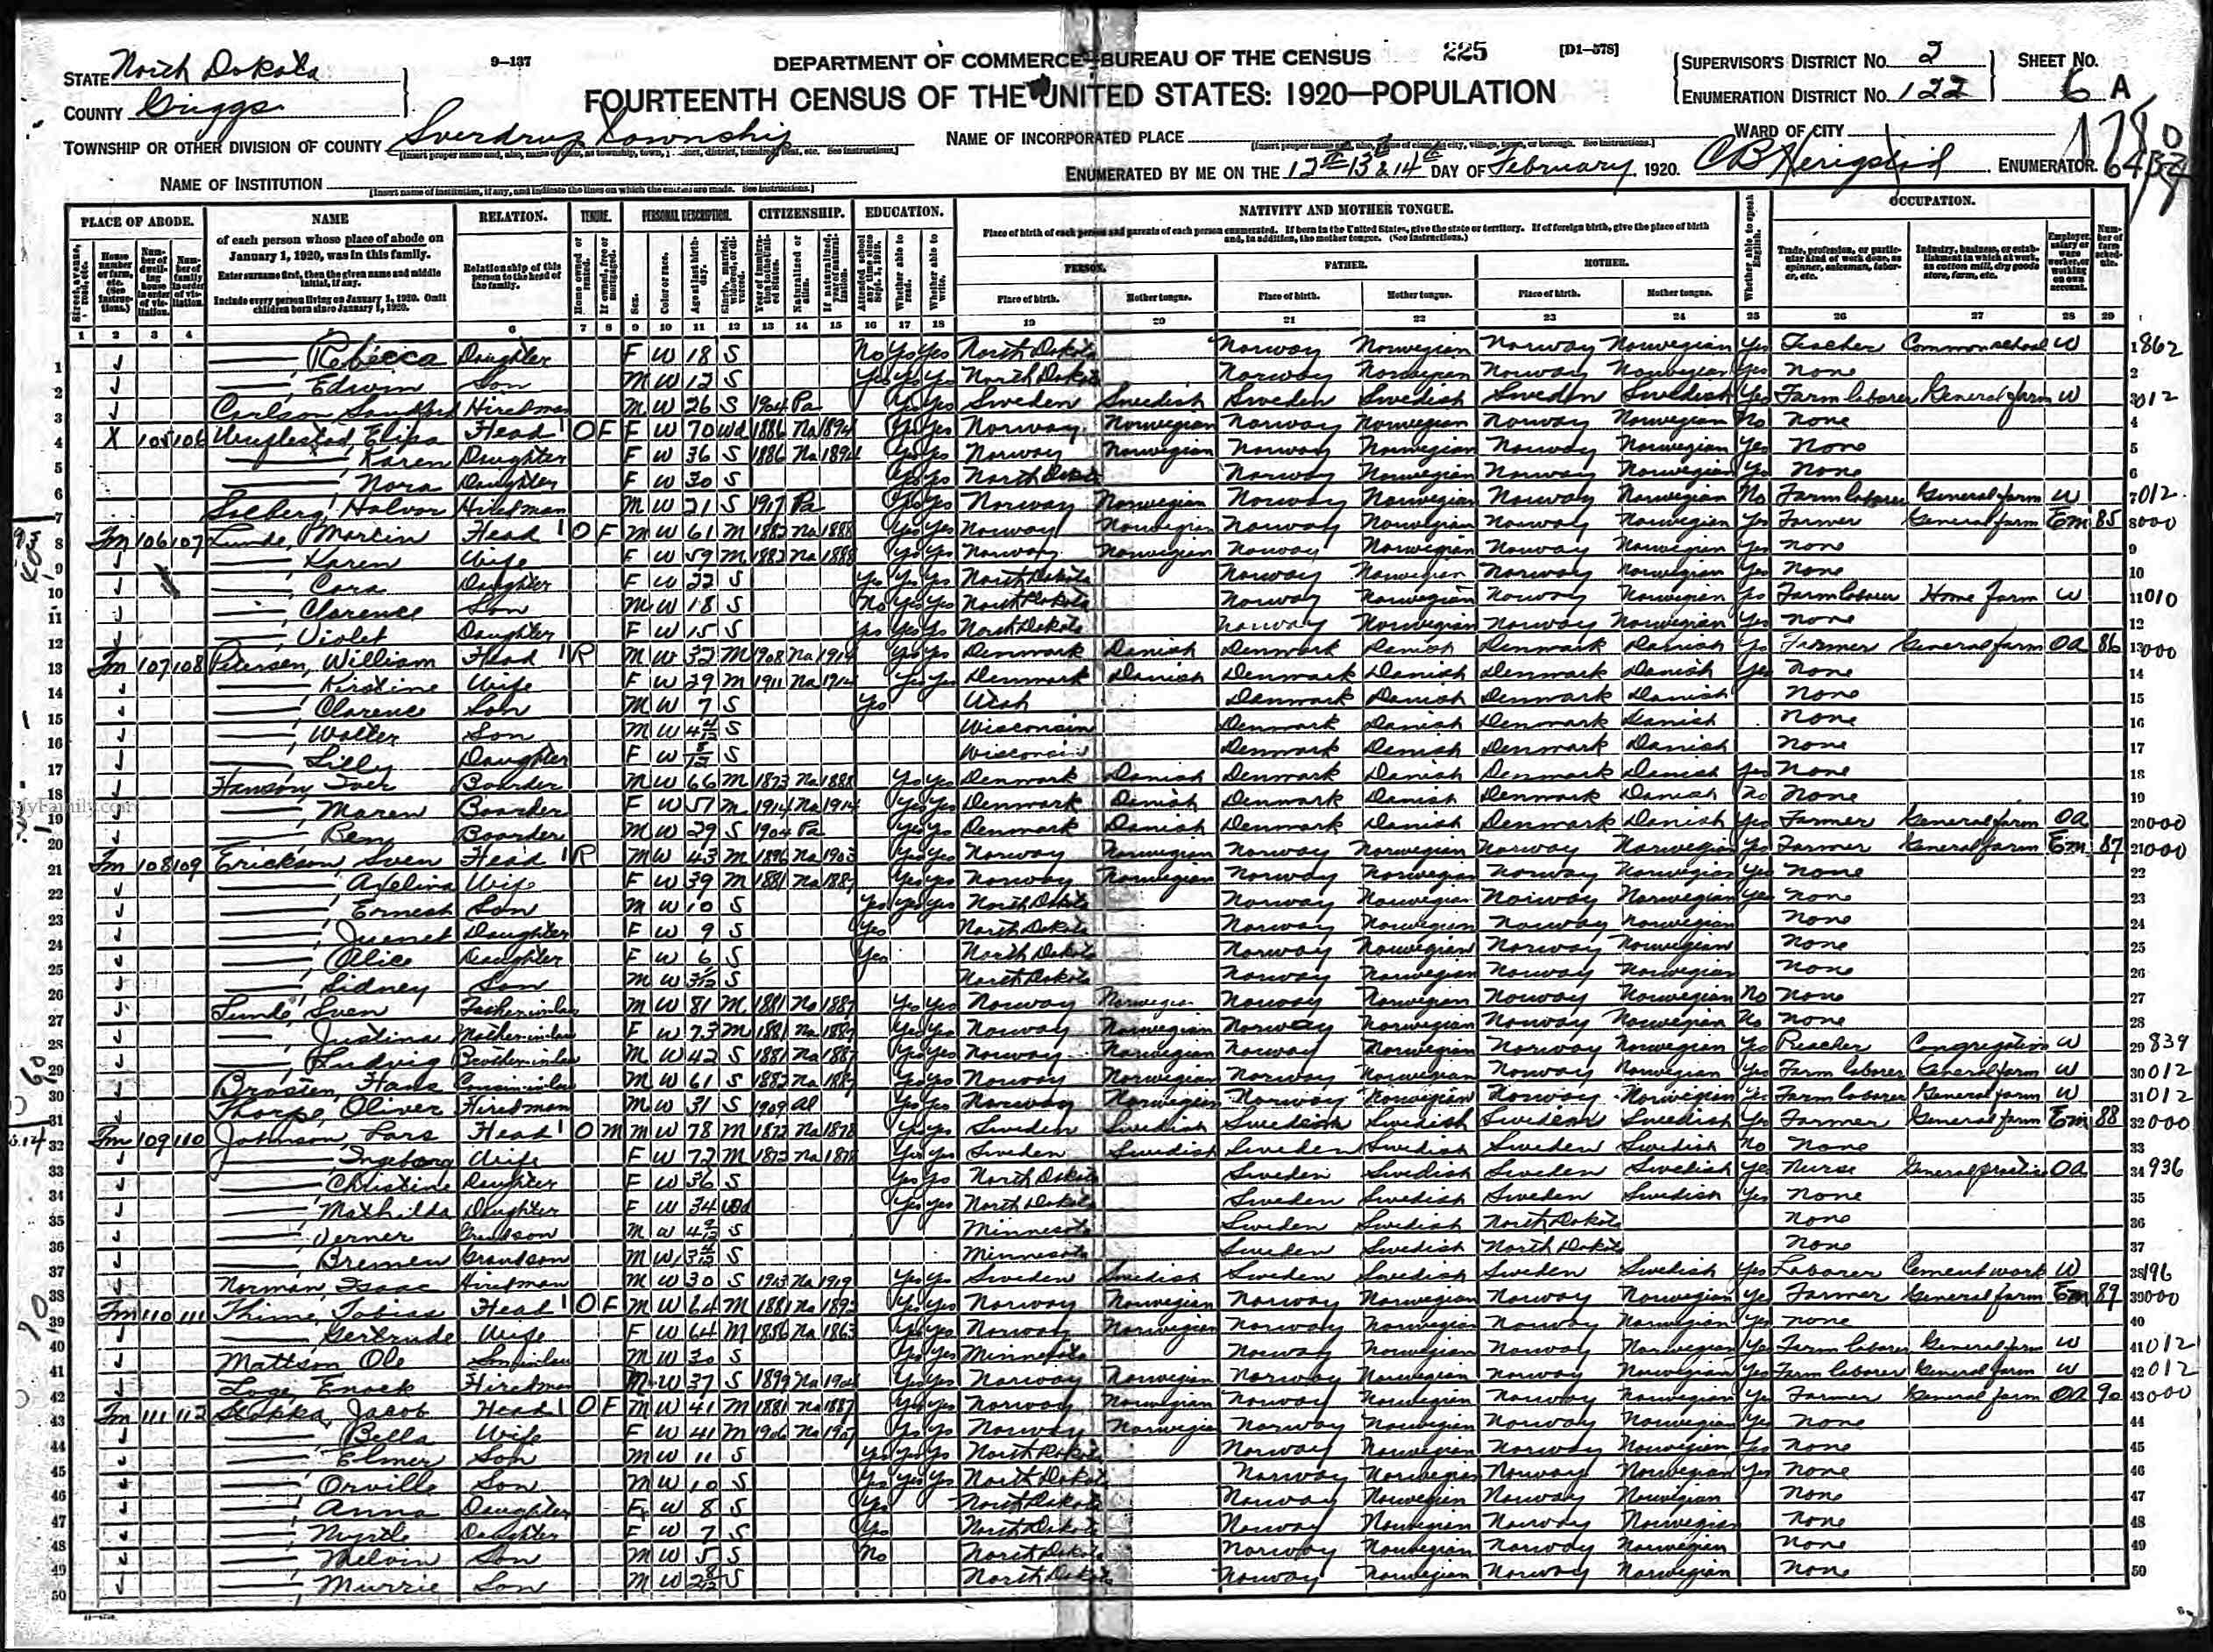 9—137
DEPARTMENT OF COMMERCE—BUREAU OF THE CENSUS
225
[D1-578]
FOURTEENTH CENSUS OF THE UNITED STATES: 1920—POPULATION
STATE North Dakota
COUNTY Griggs
TOWNSHIP OR OTHER DIVISION OF COUNTY Sverdrup Township
NAME OF INSTITUTION
[Insert name of institution, if any, and indicate the lines on which the entries are made. See instructions.]
NAME OF INCORPORATED PLACE
WARD OF CITY
ENUMERATED BY ME ON THE 12th 13th & 14th DAY OF February, 1920.
ENUMERATOR.
SUPERVISOR'S DISTRICT No. 2
ENUMERATION DISTRICT No. 122
SHEET No. 6 A
PLACE OF ABODE. NAME RELATION. TENURE. PERSONAL DESCRIPTION. CITIZENSHIP. EDUCATION. NATIVITY AND MOTHER TONGUE. OCCUPATION.
of each person whose place of abode on January 1, 1920, was in this family.
Enter surname first, then the given name and middle initial, if any.
Include every person living on January 1, 1920. Omit children born since January 1, 1920.
Relationship of this person to the head of the family.
Place of birth of each person and parents of each person enumerated. If born in the United States, give the state or territory. If of foreign birth, give the place of birth and, in addition, the mother tongue. (See instructions.)
PERSON. FATHER. MOTHER.
Place of birth. Mother tongue. Place of birth. Mother tongue. Place of birth. Mother tongue.
1 2 3 4 6 7 8 9 10 11 12 13 14 15 16 17 18 19 20 21 22 23 24 25 26 27 28 29
1 Rebecca Daughter F W 18 S No Yes Yes North Dakota Norway Norwegian Norway Norwegian Yes Teacher Common school W 862
2 Edwin Son M W 12 S Yes Yes Yes North Dakota Norway Norwegian Norway Norwegian Yes None
3 Carlson Sandford Hired man M W 26 S 1904 Pa Yes Yes Sweden Swedish Sweden Swedish Sweden Swedish Yes Farm laborer General farm W 012
4 X 105 106 Elisa Head O F F W 70 Wd 1886 Na 1894 Yes Yes Norway Norwegian Norway Norwegian Norway Norwegian No None
5 Karen Daughter F W 36 S 1886 Na 1894 Yes Yes Norway Norwegian Norway Norwegian Norway Norwegian Yes None
6 Nora Daughter F W 30 S Yes Yes North Dakota Norway Norwegian Norway Norwegian Yes None
7 Solberg Halvor Hired man M W 21 S 1917 Pa Yes Yes Norway Norwegian Norway Norwegian Norway Norwegian No Farm laborer General farm W 012
8 Fm 106 107 Lunde, Martin Head O F M W 61 M 1882 Na 1888 Yes Yes Norway Norwegian Norway Norwegian Norway Norwegian Yes Farmer General farm Em 85 000
9 Karen Wife F W 59 M 1882 Na 1888 Yes Yes Norway Norwegian Norway Norwegian Norway Norwegian Yes None
10 Cora Daughter F W 22 S Yes Yes Yes North Dakota Norway Norwegian Norway Norwegian Yes None
11 Clarence Son M W 18 S No Yes Yes North Dakota Norway Norwegian Norway Norwegian Yes Farm laborer Home farm W 010
12 Violet Daughter F W 15 S Yes Yes Yes North Dakota Norway Norwegian Norway Norwegian Yes None
13 Fm 107 108 Petersen, William Head R M W 32 M 1908 Na 1914 Yes Yes Denmark Danish Denmark Danish Denmark Danish Yes Farmer General farm OA 86 000
14 Kirstine Wife F W 29 M 1911 Na 1914 Yes Yes Denmark Danish Denmark Danish Denmark Danish Yes None
15 Clarence Son M W 7 S Yes Utah Denmark Danish Denmark Danish None
16 Walter Son M W S Wisconsin Denmark Danish Denmark Danish None
17 Lilly Daughter F W S Wisconsin Denmark Danish Denmark Danish None
18 Hanson, Iver Boarder M W 66 M 1873 Na 1888 Yes Yes Denmark Danish Denmark Danish Denmark Danish Yes None
19 Maren Boarder F W 51 M 1914 Na 1914 Yes Yes Denmark Danish Denmark Danish Denmark Danish No None
20 Ben Boarder M W 29 S 1904 Pa Yes Yes Denmark Danish Denmark Danish Denmark Danish Yes Farmer General farm OA 000
21 Fm 108 109 Erickson, Sven Head R M W 43 M 1896 Na 1903 Yes Yes Norway Norwegian Norway Norwegian Norway Norwegian Yes Farmer General farm Em 87 000
22 Axelina Wife F W 39 M 1881 Na 1887 Yes Yes Norway Norwegian Norway Norwegian Norway Norwegian Yes None
23 Ernest Son M W 10 S Yes Yes Yes North Dakota Norway Norwegian Norway Norwegian Yes None
24 Juenet Daughter F W 9 S Yes North Dakota Norway Norwegian Norway Norwegian None
25 Alice Daughter F W 6 S Yes North Dakota Norway Norwegian Norway Norwegian None
26 Sidney Son M W S North Dakota Norway Norwegian Norway Norwegian None
27 Lunde, Sven Father in law M W 81 M 1881 Na 1887 Yes Yes Norway Norwegian Norway Norwegian Norway Norwegian No None
28 Justina Mother in law F W 73 M 1881 Na 1887 Yes Yes Norway Norwegian Norway Norwegian Norway Norwegian No None
29 Ludvig Brother in law M W 42 S 1881 Na 1887 Yes Yes Norway Norwegian Norway Norwegian Norway Norwegian Yes Preacher Congregation W 839
30 Brosten, Hans Cousin in law M W 61 S 1882 Na 1887 Yes Yes Norway Norwegian Norway Norwegian Norway Norwegian Yes Farm laborer General farm W 012
31 Thorpe, Oliver Hired man M W 31 S 1909 Al Yes Yes Norway Norwegian Norway Norwegian Norway Norwegian Yes Farm laborer General farm W 012
32 Fm 109 110 Johnson, Lars Head O M M W 78 M 1872 Na 1878 Yes Yes Sweden Swedish Swedish Swedish Sweden Swedish Yes Farmer General farm Em 88 000
33 Ingeborg Wife F W 72 M 1872 Na 1878 Yes Yes Sweden Swedish Sweden Swedish Sweden Swedish No None
34 Christine Daughter F W 36 S Yes Yes North Dakota Sweden Swedish Sweden Swedish Yes Nurse General practice OA 936
35 Mathilda Daughter F W 34 Wd Yes Yes North Dakota Sweden Swedish Sweden Swedish Yes None
36 Verner Grandson M W S Minnesota Sweden Swedish North Dakota None
37 Bremen Grandson M W S Minnesota Sweden Swedish North Dakota None
38 Norman, Isaac Hired man M W 30 S 1903 Na 1919 Yes Yes Sweden Swedish Sweden Swedish Sweden Swedish Yes Laborer Cement work W 196
39 Fm 110 111 Thime, Tobias Head O F M W 64 M 1881 Na 1892 Yes Yes Norway Norwegian Norway Norwegian Norway Norwegian Yes Farmer General farm Em 89 000
40 Gertrude Wife F W 64 M 1856 Na 1863 Yes Yes Norway Norwegian Norway Norwegian Norway Norwegian Yes None
41 Mattson Ole Son in law M W 30 S Yes Yes Minnesota Norway Norwegian Norway Norwegian Yes Farm laborer General farm W 012
42 Loge, Enock Hired man M W 37 S 1899 Na Yes Yes Norway Norwegian Norway Norwegian Norway Norwegian Yes Farm laborer General farm W 012
43 Fm 111 112 Jacob Head O F M W 41 M 1881 Na 1887 Yes Yes Norway Norwegian Norway Norwegian Norway Norwegian Yes Farmer General farm OA 90 000
44 Bella Wife F W 41 M 1906 Na 1907 Yes Yes Norway Norwegian Norway Norwegian Norway Norwegian Yes None
45 Elmer Son M W 11 S Yes Yes Yes North Dakota Norway Norwegian Norway Norwegian Yes None
46 Orville Son M W 10 S Yes Yes Yes North Dakota Norway Norwegian Norway Norwegian Yes None
47 Anna Daughter F W 8 S Yes North Dakota Norway Norwegian Norway Norwegian None
48 Myrtle Daughter F W 7 S Yes North Dakota Norway Norwegian Norway Norwegian None
49 Melvin Son M W 5 S No North Dakota Norway Norwegian Norway Norwegian None
50 Murrie Son M W S North Dakota Norway Norwegian Norway Norwegian None